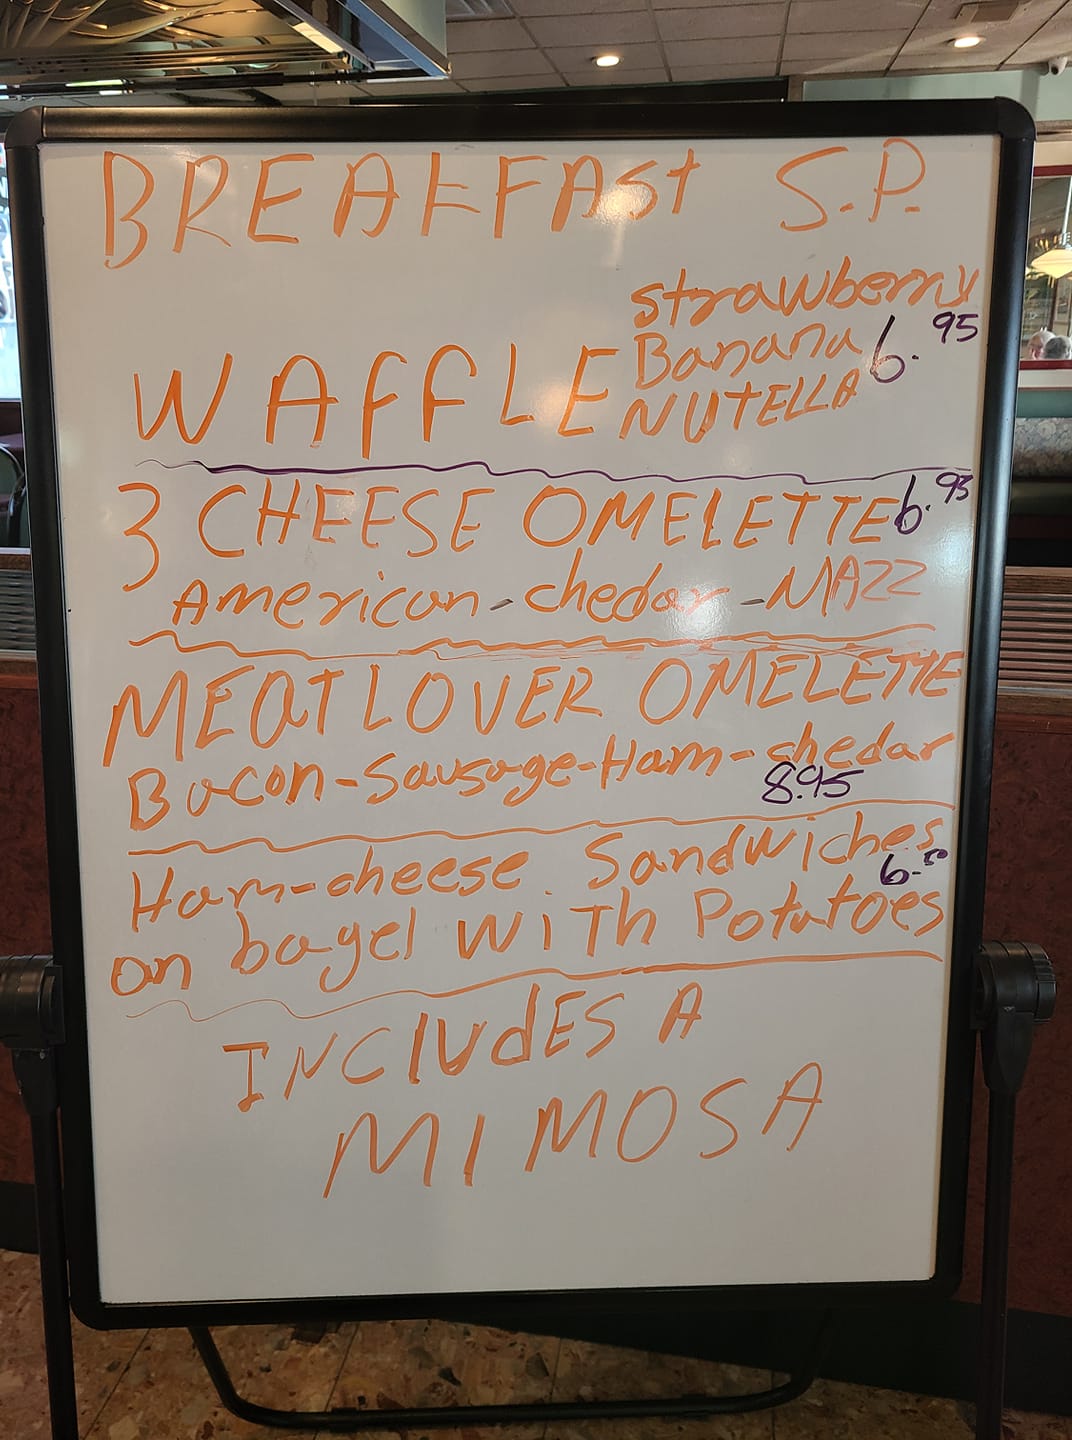 BREAKFASt S.P.
strawberry
Banana 6.95
WAFFLE NUTELLA
3 CHEESE OMELETTE 6.95
American-chedar-MAZZ
MEAT LOVER OMELETTE
Bacon-Sausage-Ham-chedar
8.95
Ham-cheese Sandwiches
6.50
on bagel WiTh Potatoes
INCLUdES A
MIMOSA